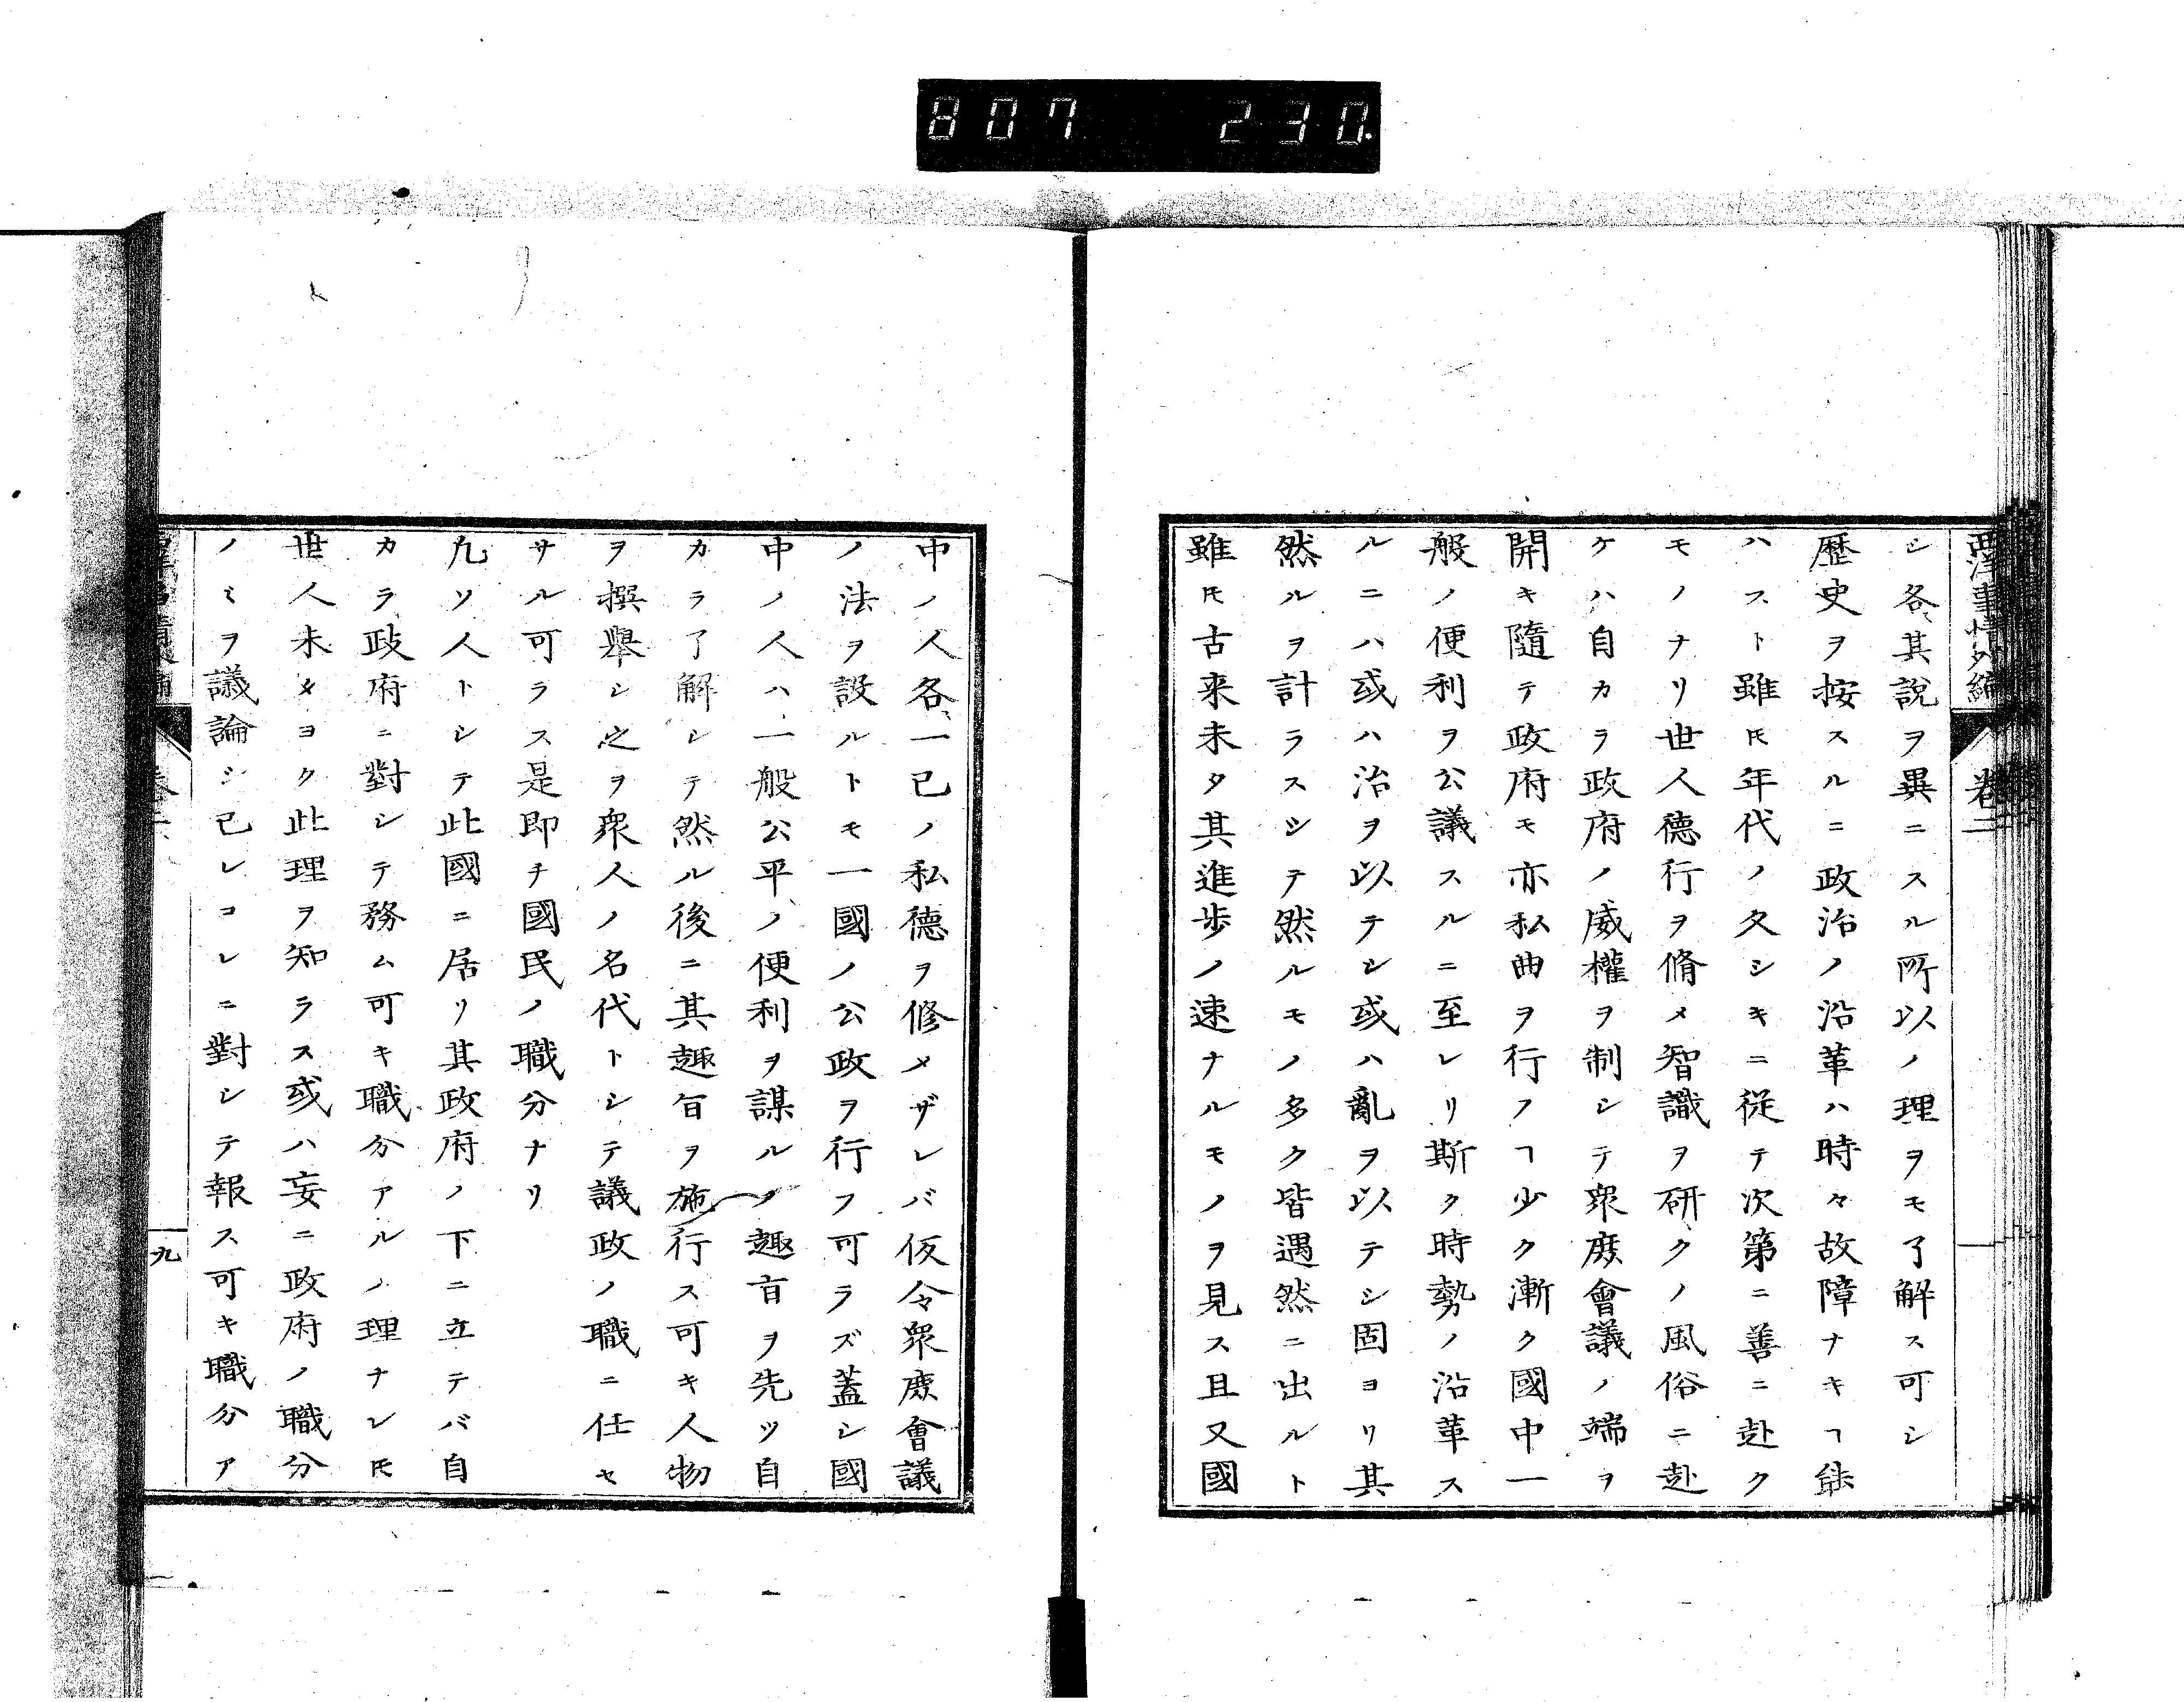 807 230
西洋事情外編 卷二
シ各、其說ヲ異ニスル所以ノ理ヲモ了解ス可シ
歷史ヲ按スルニ政治ノ沿革ハ時々故障ナキヿ能
ハスト雖𪜈年代ノ久シキニ從テ次第ニ善ニ赴ク
モノナリ世人德行ヲ脩メ智識ヲ研クノ風俗ニ赴
ケハ自カラ政府ノ威權ヲ制シテ衆庶會議ノ端ヲ
開キ隨テ政府モ亦私曲ヲ行フヿ少ク漸ク國中一
般ノ便利ヲ公議スルニ至レリ斯ク時勢ノ沿革ス
ルニハ或ハ治ヲ以テシ或ハ亂ヲ以テシ固ヨリ其
然ルヲ計ラスシテ然ルモノ多ク皆遇然ニ出ルト
雖𪜈古来未タ其進歩ノ速ナルモノヲ見ス且又國
中ノ人各、一己ノ私德ヲ修メザレバ仮令衆庶會議
ノ法ヲ設ルトモ一國ノ公政ヲ行フ可ラズ蓋シ國
中ノ人ハ一般公平ノ便利ヲ謀ルノ趣旨ヲ先ツ自
カラ了解シテ然ル後ニ其趣旨ヲ施行ス可キ人物
ヲ撰舉シ之ヲ衆人ノ名代トシテ議政ノ職ニ任セ
サル可ラス是即チ國民ノ職分ナリ
凢ソ人トシテ此國ニ居リ其政府ノ下ニ立テバ自
カラ政府ニ對シテ務ム可キ職分アルノ理ナレ𪜈
世人未タヨク此理ヲ知ラス或ハ妄ニ政府ノ職分
ノミヲ議論シ己レコレニ對シテ報ス可キ職分ア
九